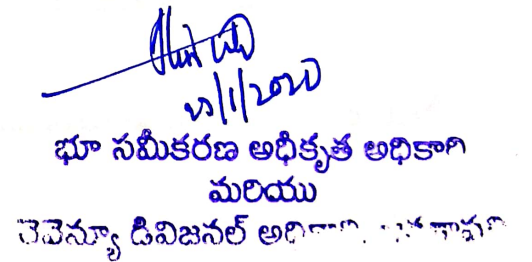 23/1/2020
భూ సమీకరణ అధికృత అధికారి
మరియు
రెవెన్యూ డివిజనల్ అధికారి,